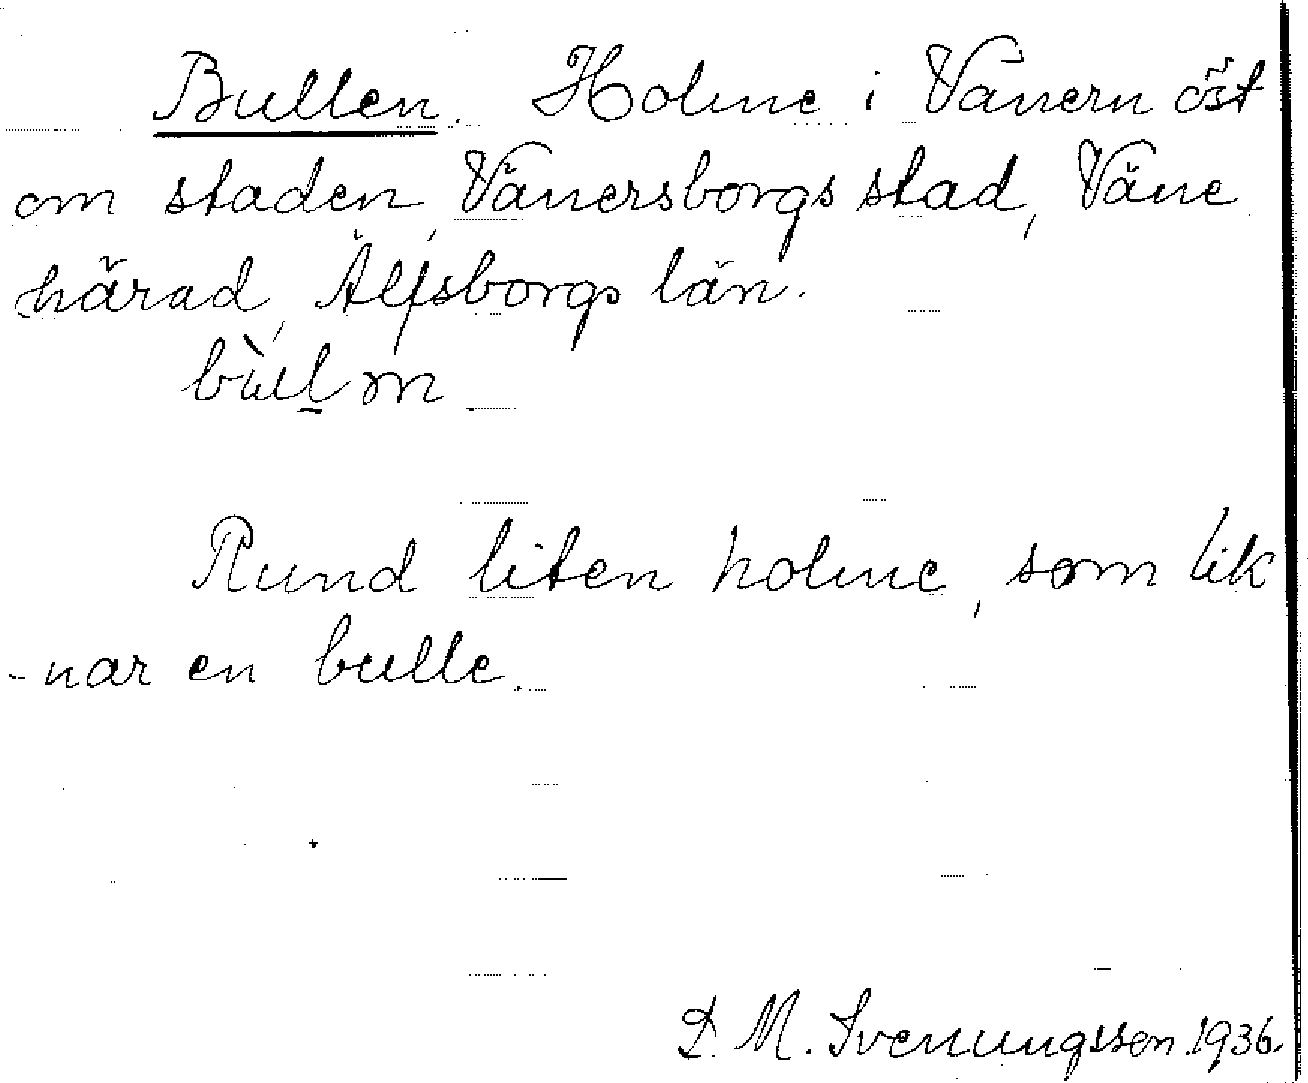 Bullen. Holme i Vänern öst
om staden, Vänersborgs stad, Väne
härad, Älfsborgs län.
bùll̲ən
Rund liten holme, som lik
-nar en bulle.
D. M. Svenungsson 1936.